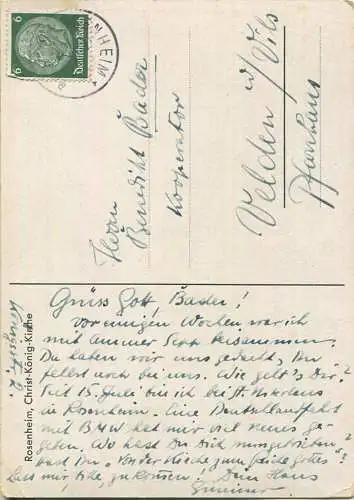 6 Deutsches Reich 6
NHEIM
Herrn
Benedikt Bader
Kooperator
Velden a/ Vils
Pfarrhaus
Rosenheim, Christ-König-Kirche
Grüss Gott, Bader!
Vor einigen Wochen war ich
mit Ammer Sepp beisammen.
Da haben wir uns gedacht, Du
fehlst noch bei uns. Wie geht's Dir?
Seit 15. Juli bin ich bei St. Nikolaus
in Rosenheim. Eine Deutschlandfahrt
mit BMW hat mir viel neues ge-
geben. Wo hast Du Dich rumgetrieben?
hast Du „Von der Kirche zum Gotte"?
Lass mir, bitte, zukommen! Dein Hans